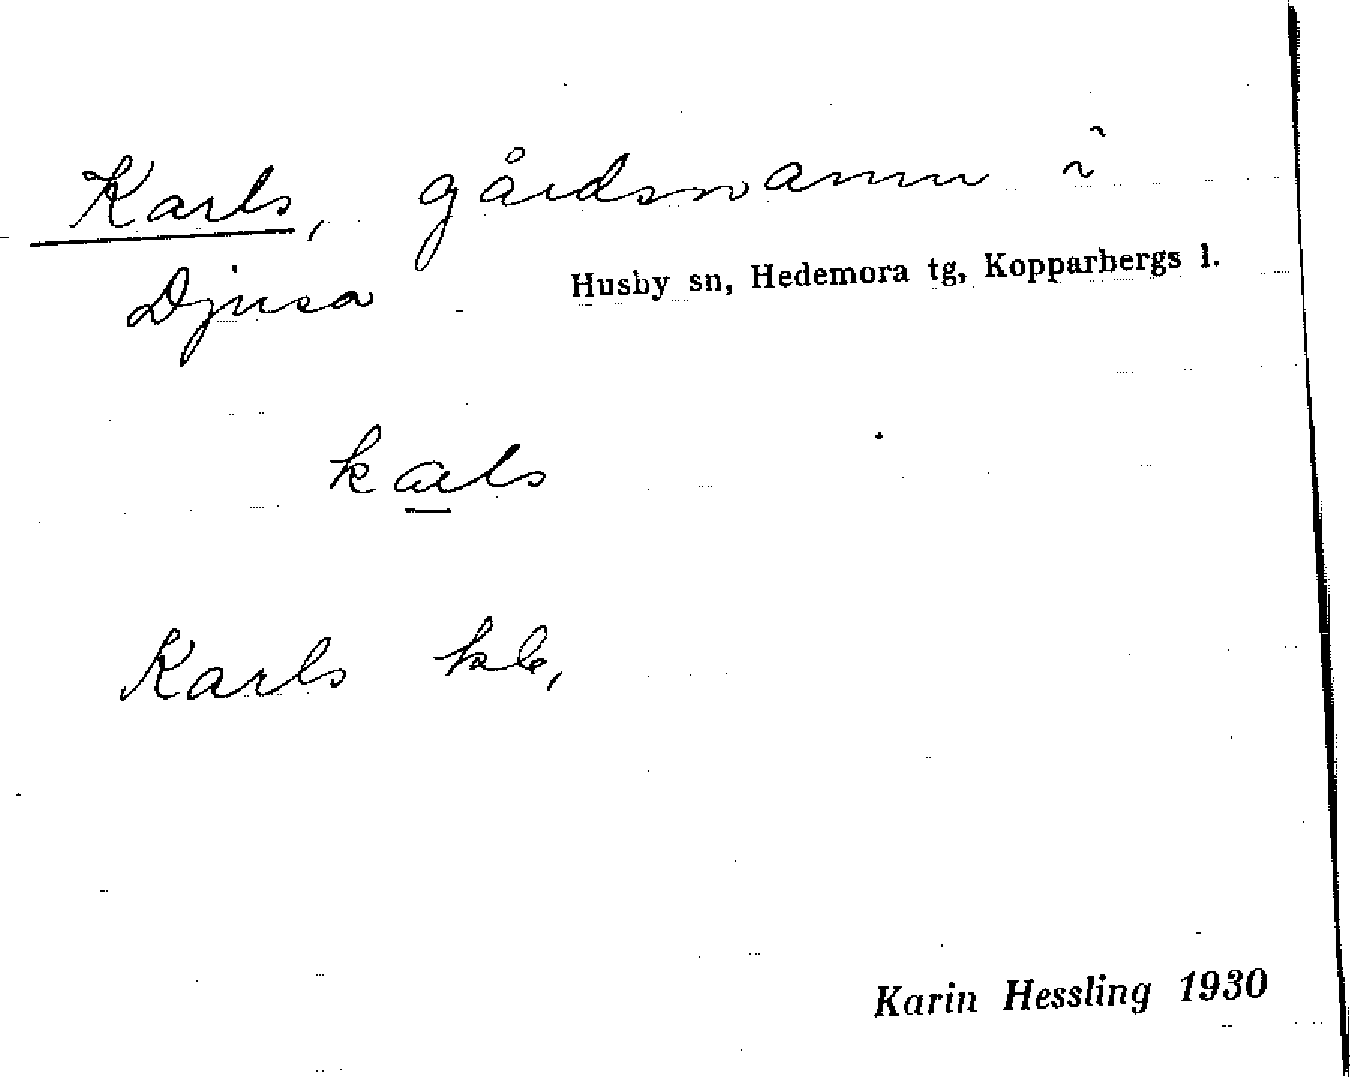 Karls, gårdsnamn i
Djusa Husby sn, Hedemora tg, Kopparbergs l.
kals
Karls kb,
Karin Hessling 1930